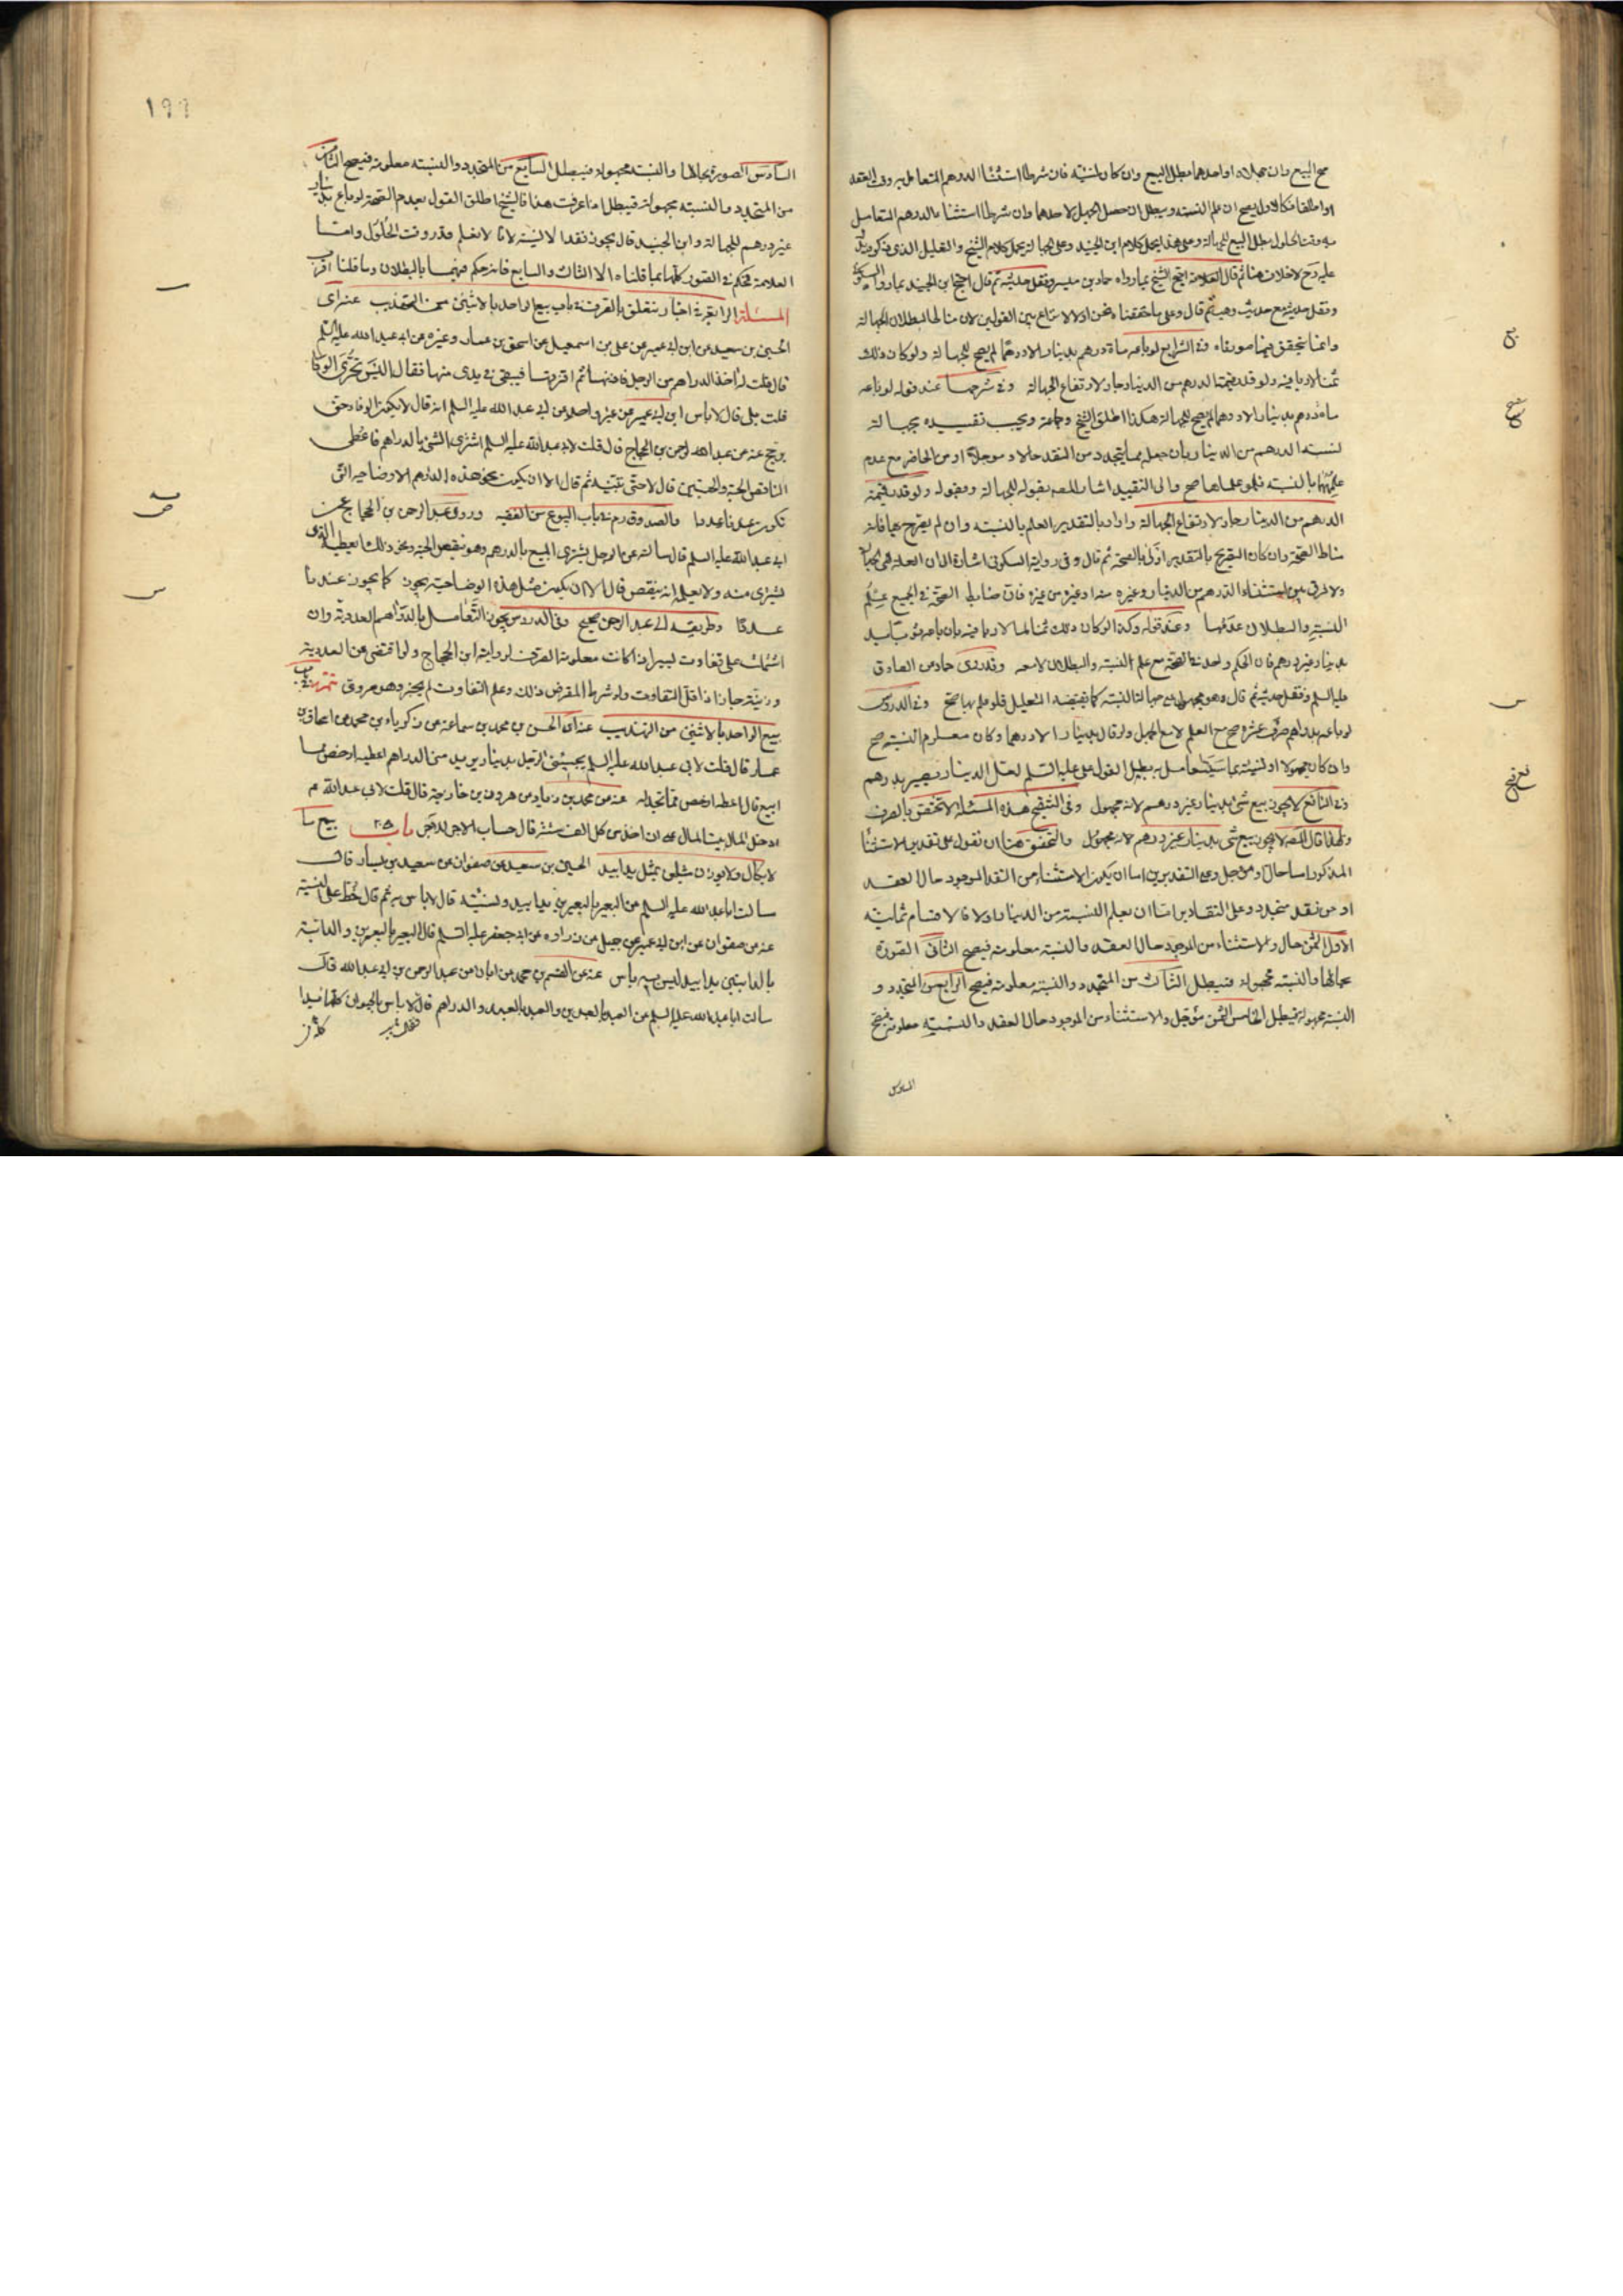 صح البيع وان جهلاه او احدهما بطل البيع وان كان نسيئة فان شرطا استثنا الدرهم المتعامل به وقت العقد
او اطلقا فكالاول يصح ان علم النسبة ويبطل ان حصل الجهل لاحدهما وان شرطا استثنا الدرهم المتعامل
به وقت الحلول بطل البيع للجهالة وعلى هذا يحمل كلام ابن الجنيد وعلى الجهالة يحمل كلام الشيخ والتعليل الذي ذكره يدل
عليه وح لا خلاف هنا ثم قال العلامة احتج الشيخ بما رواه حماد بن ميسر ونقل حديثه ثم قال احتج ابن الجنيد بما رواه السكوني
ونقل حديثه مع حديث وهب ثم قال وعلى ما حققناه نحن اولا لا تنازع بين القولين لان مناط البطلان الجهالة
وانما يتحقق فيما صورناه وفي الشرايع لو باعه مائة درهم بدينار الا درهما لم يصح للجهالة ولو كان ذلك
ثمنا لما لا ربا فيه ولو قدر قيمة الدرهم من الدينار جاز لارتفاع الجهالة وفي شرحها عند قوله لو باعه
مائة درهم بدينار الا درهما لم يصح للجهالة هكذا اطلق الشيخ وجماعة ويجب تقييده بجهالة
نسبة الدرهم من الدينار بان جعله مما يتجدد من النقد حالا و مؤجلا او من الحاضر مع عدم
علمهما بالنسبة فلو علماها صح والى التقييد اشار المصه بقوله للجهالة وبقوله ولو قدر قيمة
الدرهم من الدينار جاز لارتفاع الجهالة واراد بالتقدير العلم بالنسبة وان لم يصرح بها فانه
مناط الصحة وان كان التصريح بالتقدير اولى بالصحة ثم قال وفي رواية السكوني اشارة الى ان العلة هي الجهالة
ولا فرق بين استثناء الدرهم من الدينار وغيره منه او غيره من غيره فان ضابط الصحة في الجميع علم
النسبة والبطلان عدمها وعند قوله وكذا لو كان ذلك ثمنا لما لا ربا فيه بان باعه ثوبا
بدينار غير درهم فان الحكم واحد في الصحة مع علم النسبة والبطلان لا معه وقد روى حماد عن الصادق
عليه السلم ونقل حديثه ثم قال وهو مجهول على جهالة النسبة كما يقتضيه التعليل فلو علم بها صح وفي الدروس
لو باعه بدراهم صرف عشرة صح مع العلم لا مع الجهل ولو قال بدينار الا درهما وكان معلوم النسبة صح
وان كان مجهولا او نسيئة بما سيتعامل به بطل لقول علي عليه السلم لعل الدينار يصير بدرهم
وفي النافع لا يجوز بيع شي بدينار غير درهم لانه مجهول وفي التنقيح هذه المسئلة لا تختص بالصرف
ولهذا قال المصه لا يجوز بيع شي بدينار غير درهم لانه مجهول والتحقيق هنا ان نقول على تقدير الاستثناء
المذكور اما حال او مؤجل وعلى التقديرين اما ان يكون الاستثناء من النقد الموجود حال العقد
او من نقد متجدد وعلى التقادير اما ان يعلم النسبة من الدينار او لا فالاقسام ثمانية
الاول الثمن حال والاستثناء من الموجود حال العقد والنسبة معلومة فيصح الثاني الصورة
بحالها والنسبة مجهولة فيبطل الثالث من المتجدد والنسبة معلومة فيصح الرابع من المتجدد و
النسبة مجهولة فيبطل الخامس الثمن مؤجل والاستثناء من الموجود حال العقد والنسبة معلومة فيصح
السادس
السادس الصورة بحالها والنسبة مجهولة فيبطل السابع من المتجدد والنسبة معلومة فيصح الثامن
من المتجدد والنسبة مجهولة فيبطل اذا عرفت هذا فالشيخ اطلق القول بعدم الصحة لو باع بدينار
غير درهم للجهالة وابن الجنيد قال يجوز نقدا لا نسيئة لانا لا نعلم قدره وقت الحلول واما
العلامة فحكم في الصور كلها بما قلناه الا الثالث والسابع فانه حكم فيهما بالبطلان وما قلنا اقرب
المسئلة الرابعة في اخبار تتعلق بالصرف في باب بيع الواحد بالاثنين من التهذيب عنه اي
الحسين بن سعيد عن ابن ابي عمير عن علي بن اسمعيل عن اسحق بن عمار وغيره عن ابي عبد الله عليه السلم
قال قلت له آخذ الدراهم من الرجل فازنها ثم افرقها فيبقى في يدي منها فقال اليس تحرى الوفا
قلت بلى قال لا باس ابن ابي عمير عن غير واحد عن ابي عبد الله عليه السلم انه قال لا يكون الوفا حتى
يرجح عنه عن عبد الرحمن بن الحجاج قال قلت لابي عبد الله عليه السلم اشترى الشي بالدراهم فاعطى
الناقص الحبة والحبتين قال لا حتى تبينه ثم قال الا ان يكون نحو هذه الدراهم الاوضاحية التي
تكون عندنا عددا والصدوق رم في باب البيوع من الفقيه وروى عبد الرحمن بن الحجاج عن
ابي عبد الله عليه السلم قال سالته عن الرجل يشتري المبيع بالدرهم وهو ينقص الحبة ونحو ذلك ايعطيه الذي
يشتري منه ولا يعلمه انه ينقص قال لا الا ان يكون مثل هذه الوضاحية يجوز كما يجوز عندنا
عددا وطريقه الى عبد الرحمن صحيح وفي الدروس يجوز التعامل بالدراهم العددية وان
اشتملت على تفاوت يسير اذا كانت معلومة الصرف لرواية ابن الحجاج ولو اقتضى عن العددية
وزنية جاز اذا قل التفاوت ولو شرط المقرض ذلك وعلم التفاوت لم يجز وهو مروي تتمة في باب
بيع الواحد بالاثنين من التهذيب عنه اي الحسن بن محمد بن سماعة عن زكرياء بن محمد عن اسحاق بن
عمار قال قلت لابي عبد الله عليه السلم يجيئني الرجل بدينار يريد مني الدراهم اعطيه ارخص مما
ابيع قال اعطه ارخص مما تجد له عنه عن محمد بن زياد عن هرون بن خارجة قال قلت لابي عبد الله م
ادخل المال بيت المال على ان آخذ من كل الف ستة قال حساب الاجر للاجر باب بيع ما
لا يكال ولا يوزن شيئي بمثل يدا بيد الحسين بن سعيد عن صفوان عن سعيد بن يسار قال
سالت ابا عبد الله عليه السلم عن البعير بالبعيرين يدا بيد ونسيئة قال لا باس به ثم قال خط على النسيئة
عنه عن صفوان عن ابن ابي عمير عن جميل عن زراره عن ابي جعفر عليه السلم قال البعير بالبعيرين والدابة
بالدابتين يدا بيد ليس به باس عنه عن القسم بن محمد عن ابان عن عبد الرحمن بن ابي عبد الله قال
سالت ابا عبد الله عليه السلم عن العبد بالعبدين والعبد بالعبد والدراهم قال لا باس بالحيوان كلها يدا